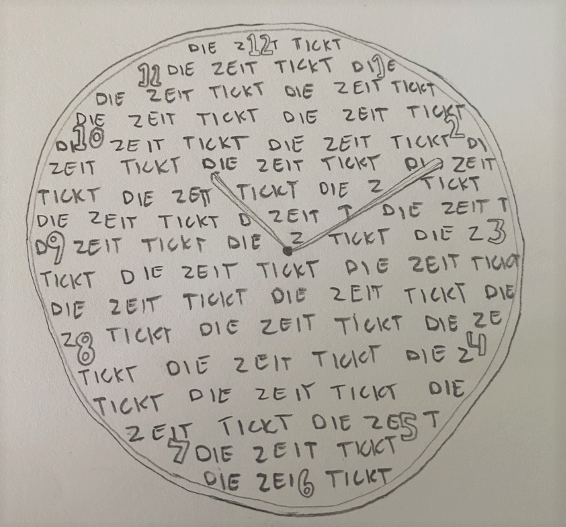 DIE Z12T TICKT
11 DIE ZEIT TICKT DI1E
DIE ZEIT TICKT DIE ZEIT TICKT
DIE ZEIT TICKT DIE ZEIT TICKT
D10 ZEIT TICKT DIE ZEIT TICKT 2 DI
ZEIT TICKT DIE ZEIT TICKT DI ZEIT
TICKT DIE ZEIT TICKT DIE Z TICKT
DIE ZEIT TICKT D ZEIT T DIE ZEIT T
D9 ZEIT TICKT DIE Z TICKT DIE Z3
TICKT DIE ZEIT TICKT DIE ZEIT TICKT
DIE ZEIT TICKT DIE ZEIT TICKT DIE
Z8 TICKT DIE ZEIT TICKT DIE ZE
TICKT DIE ZEIT TICKT DIE Z4
TICKT DIE ZEIT TICKT DIE
ZEIT TICKT DIE ZE5T
7 DIE ZEIT TICKT
DIE ZEI6 TICKT